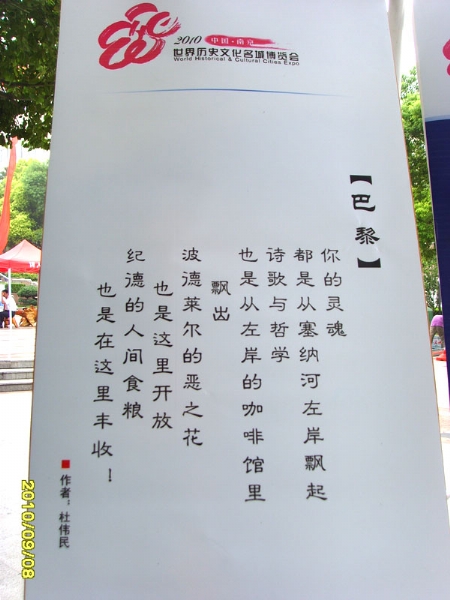 2010 中国·南京
世界历史文化名城博览会
World Historical & Cultural Cities Expo
【巴黎】
你的灵魂
都是从塞纳河左岸飘起
诗歌与哲学
也是从左岸的咖啡馆里
飘出
波德莱尔的恶之花
也是这里开放
纪德的人间食粮
也是在这里丰收！
■作者：杜伟民
2010/09/08